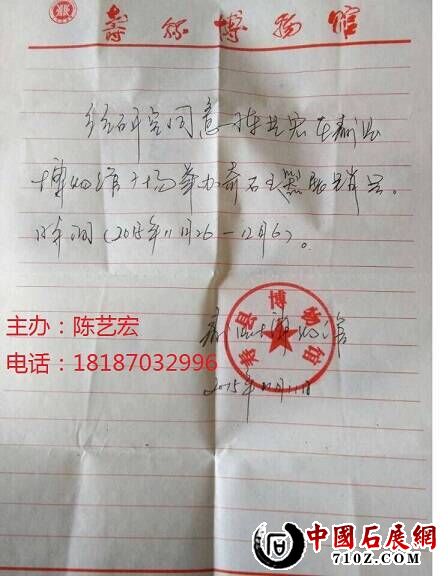 壽縣博物館
经研究同意陈艺宏在寿县
博物馆广场举办奇石玉器展销会。
时间(2015年11月26—12月6)。
寿县博物馆
寿县博物馆
2015年11月11日
主办：陈艺宏
电话：18187032996
中國石展網
710Z.COM